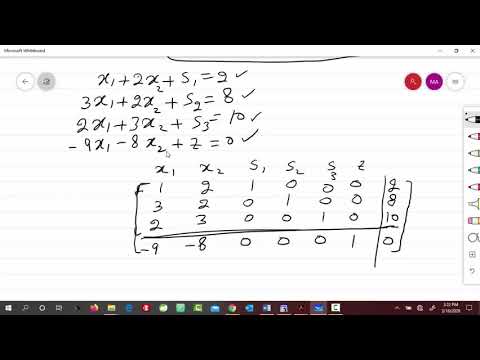 Microsoft Whiteboard
x₁+2x₂+s₁=2 ✓
3x₁+2x₂+s₂=8 ✓
2x₁+3x₂+s₃=10 ✓
-9x₁-8x₂+z=0 ✓
MA
x₁ x₂ s₁ s₂ s₃ z
1 2 1 0 0 0 2
3 2 0 1 0 0 8
2 3 0 0 1 0 10
-9 -8 0 0 0 1 0
3:22 PM